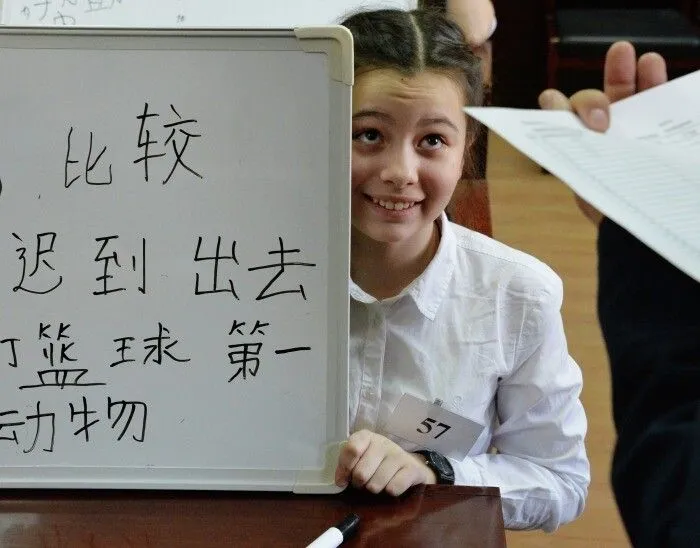 比较
迟到 出去
篮球 第一
动物
57